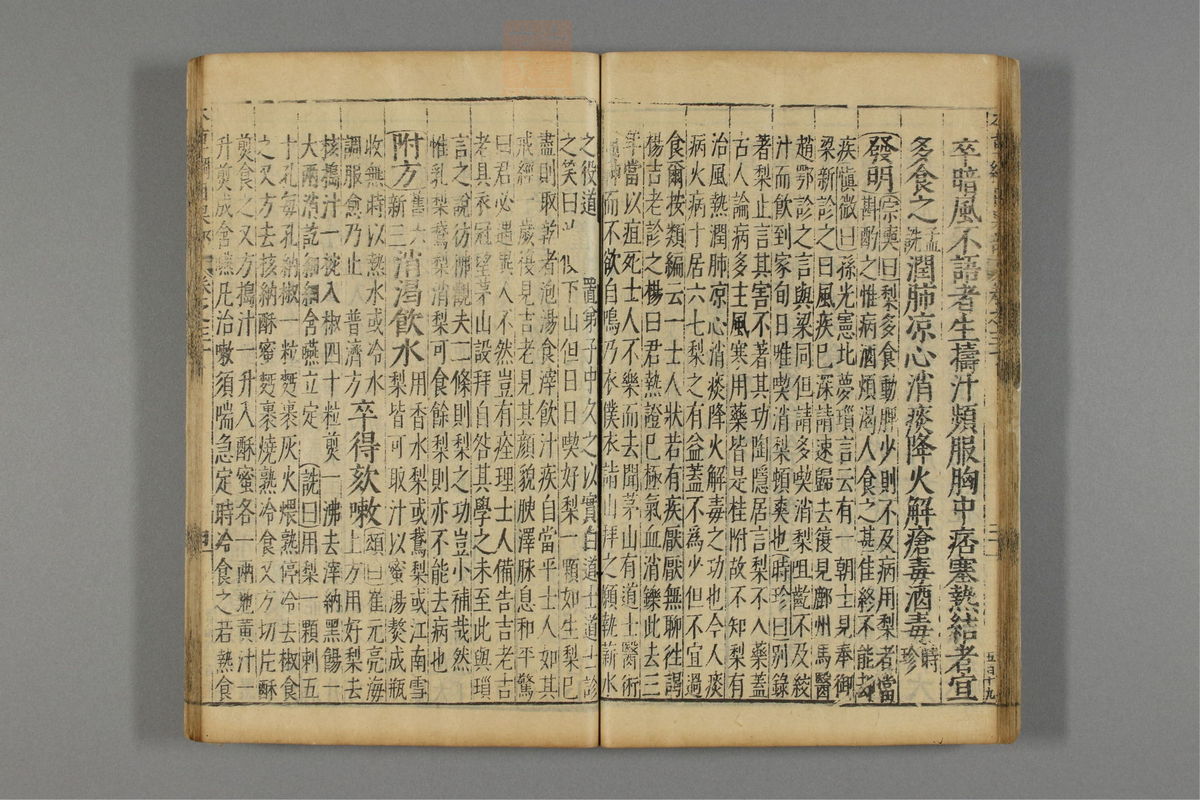 卒暗風不語者生擣汁頻服胸中痞塞熱結者宜
多食之孟詵潤肺凉心消痰降火解瘡毒酒毒時珍
發明宗奭曰梨多食動脾少則不及病用梨者當
斟酌之惟病酒煩渴人食之甚佳終不能却
疾慎微曰孫光憲北夢瑣言云有一朝士見奉御
梁新診之曰風疾已深請速歸去復見鄜州馬醫
趙鄂診之言與梁同但請多喫消梨咀齕不及絞
汁而飲到家旬日唯喫消梨頓爽也時珍曰別錄
著梨止言其害不著其功陶隱居言梨不入藥蓋
古人論病多主風寒用藥皆是桂附故不知梨有
治風熱潤肺凉心消痰降火解毒之功也今人痰
病火病十居六七梨之有益蓋不為少但不宜過
食爾按類編云一士人狀若有疾厭厭無聊往謁
楊吉老診之楊曰君熱證已極氣血消鑠此去三
年當以疽死士人不樂而去聞茅山有道士醫術
通神而不欲自鳴乃衣僕衣詣山拜之願執薪水
之役道 置弟子中久之以實白道士道士診
之笑曰 下山但日日喫好梨一顆如生梨已
盡則取乾者泡湯食滓飲汁疾自當平士人如其
戒經一歲復見吉老見其顏貌腴澤脉息和平驚
曰君必遇異人不然豈有痊理士人備告吉老吉
老具衣冠望茅山設拜自咎其學之未至此與瑣
言之說彷彿觀夫二條則梨之功豈小補哉然
惟乳梨鵞梨消梨可食餘梨則亦不能去病也
附方舊六新三消渴飲水用香水梨或鵞梨或江南雪
梨皆可取汁以蜜湯熬成瓶
收無時以熱水或冷水
調服愈乃止 普濟方卒得欬嗽頌曰崔元亮海
上方用好梨去
核搗汁一椀入椒四十粒煎一沸去滓納黑餳一
大兩消訖細細含嚥立定 詵曰用梨一顆刺五
十孔每孔納椒一粒麪裹灰火煨熟停冷去椒食
之又方去核納酥蜜麪裹燒熟冷食又方切片酥
煎食之又方搗汁一升入酥蜜各一兩地黃汁一
升煎成含嚥凡治嗽須喘急定時冷食之若熱食